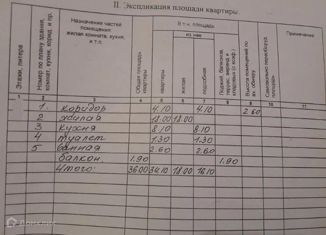 II. Экспликация площади квартиры
Этажи, литера
Номер по плану здания, комнат, кухни, корид. и пр.
Назначение частей помещения: жилая комната, кухня, и т.п.
Общая площадь квартиры
в т.ч. площадь
квартиры
из нее
жилая
подсобная
Примечание
1 2 3 4 5 6 7 8 9 10
1 коридор 4.10 4.10 2.60
2 жилая 18.00 18.00
3 кухня 8.10 8.10
4 туалет 1.30 1.30
5 ванная 2.60 2.60
балкон. 1.90 1.90
Итого: 36.00 34.10 18.00 16.10